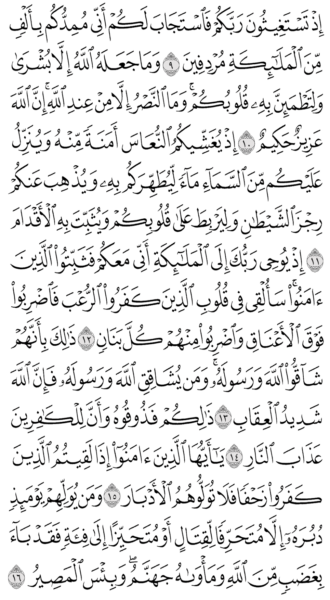 إِذْ تَسْتَغِيثُونَ رَبَّكُمْ فَٱسْتَجَابَ لَكُمْ أَنِّي مُمِدُّكُم بِأَلْفٍ
مِّنَ ٱلْمَلَٰٓئِكَةِ مُرْدِفِينَ ٩ وَمَا جَعَلَهُ ٱللَّهُ إِلَّا بُشْرَىٰ
وَلِتَطْمَئِنَّ بِهِۦ قُلُوبُكُمْ ۚ وَمَا ٱلنَّصْرُ إِلَّا مِنْ عِندِ ٱللَّهِ ۚ إِنَّ ٱللَّهَ
عَزِيزٌ حَكِيمٌ ١٠ إِذْ يُغَشِّيكُمُ ٱلنُّعَاسَ أَمَنَةً مِّنْهُ وَيُنَزِّلُ
عَلَيْكُم مِّنَ ٱلسَّمَآءِ مَآءً لِّيُطَهِّرَكُم بِهِۦ وَيُذْهِبَ عَنكُمْ
رِجْزَ ٱلشَّيْطَٰنِ وَلِيَرْبِطَ عَلَىٰ قُلُوبِكُمْ وَيُثَبِّتَ بِهِ ٱلْأَقْدَامَ
١١ إِذْ يُوحِي رَبُّكَ إِلَى ٱلْمَلَٰٓئِكَةِ أَنِّي مَعَكُمْ فَثَبِّتُوا۟ ٱلَّذِينَ
ءَامَنُوا۟ ۚ سَأُلْقِي فِي قُلُوبِ ٱلَّذِينَ كَفَرُوا۟ ٱلرُّعْبَ فَٱضْرِبُوا۟
فَوْقَ ٱلْأَعْنَاقِ وَٱضْرِبُوا۟ مِنْهُمْ كُلَّ بَنَانٍ ١٢ ذَٰلِكَ بِأَنَّهُمْ
شَآقُّوا۟ ٱللَّهَ وَرَسُولَهُۥ ۚ وَمَن يُشَاقِقِ ٱللَّهَ وَرَسُولَهُۥ فَإِنَّ ٱللَّهَ
شَدِيدُ ٱلْعِقَابِ ١٣ ذَٰلِكُمْ فَذُوقُوهُ وَأَنَّ لِلْكَٰفِرِينَ
عَذَابَ ٱلنَّارِ ١٤ يَٰٓأَيُّهَا ٱلَّذِينَ ءَامَنُوٓا۟ إِذَا لَقِيتُمُ ٱلَّذِينَ
كَفَرُوا۟ زَحْفًا فَلَا تُوَلُّوهُمُ ٱلْأَدْبَارَ ١٥ وَمَن يُوَلِّهِمْ يَوْمَئِذٍ
دُبُرَهُۥٓ إِلَّا مُتَحَرِّفًا لِّقِتَالٍ أَوْ مُتَحَيِّزًا إِلَىٰ فِئَةٍ فَقَدْ بَآءَ
بِغَضَبٍ مِّنَ ٱللَّهِ وَمَأْوَىٰهُ جَهَنَّمُ ۖ وَبِئْسَ ٱلْمَصِيرُ ١٦